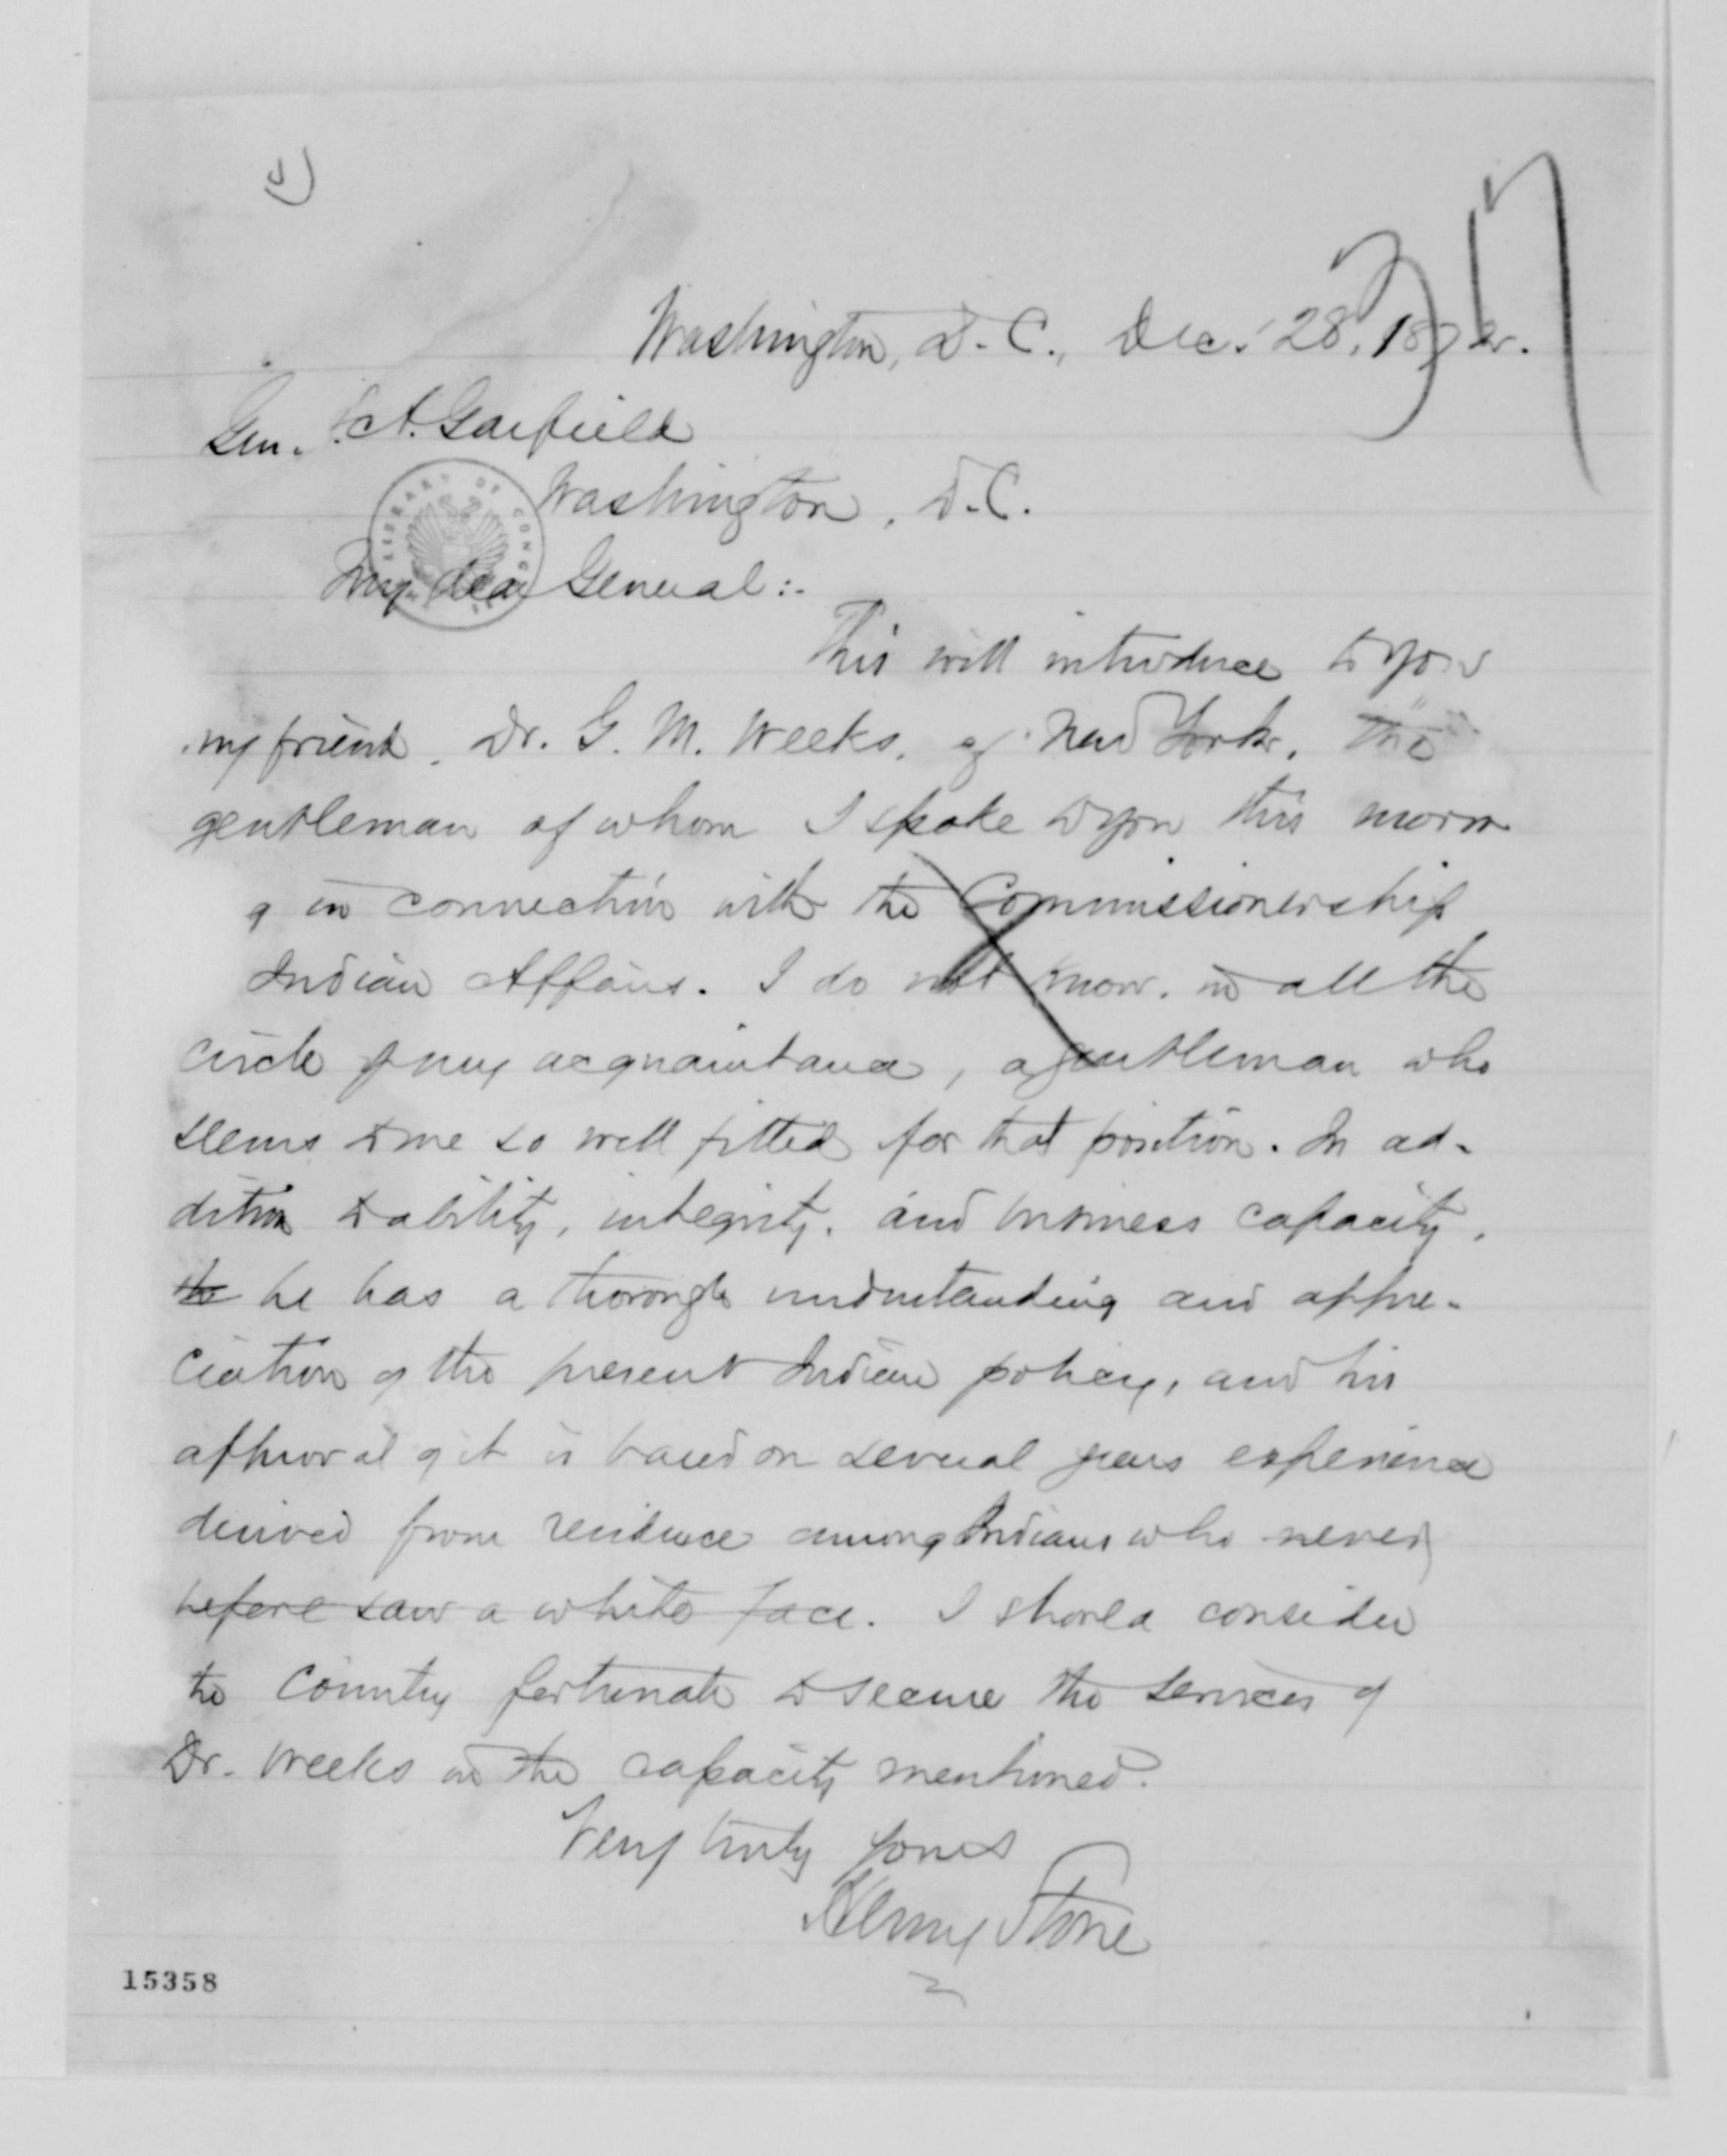 Washington, D.C., Dec. 28, 1872.
37
Gen. J. A. Garfield
Washington, D.C.
LIBRARY OF CONG
My dear General:-
This will introduce to you
my friend, Dr. G. M. Weeks, of New York, the
gentleman of whom I spoke to you this morn
g in connection with the Commissionership
Indian Affairs. I do not know, in all the
circle of my acquaintance, a gentleman who
seems to me so well fitted for that position. In ad-
dition to ability, integrity, and business capacity,
the he has a thorough understanding and appre-
ciation of the present Indian policy, and his
approval of it is based on several years experience
derived from residence among Indians who never
before saw a white face. I should consider
the Country fortunate to secure the services of
Dr. Weeks in the capacity mentioned.
Very truly yours
Henry Stone
15358